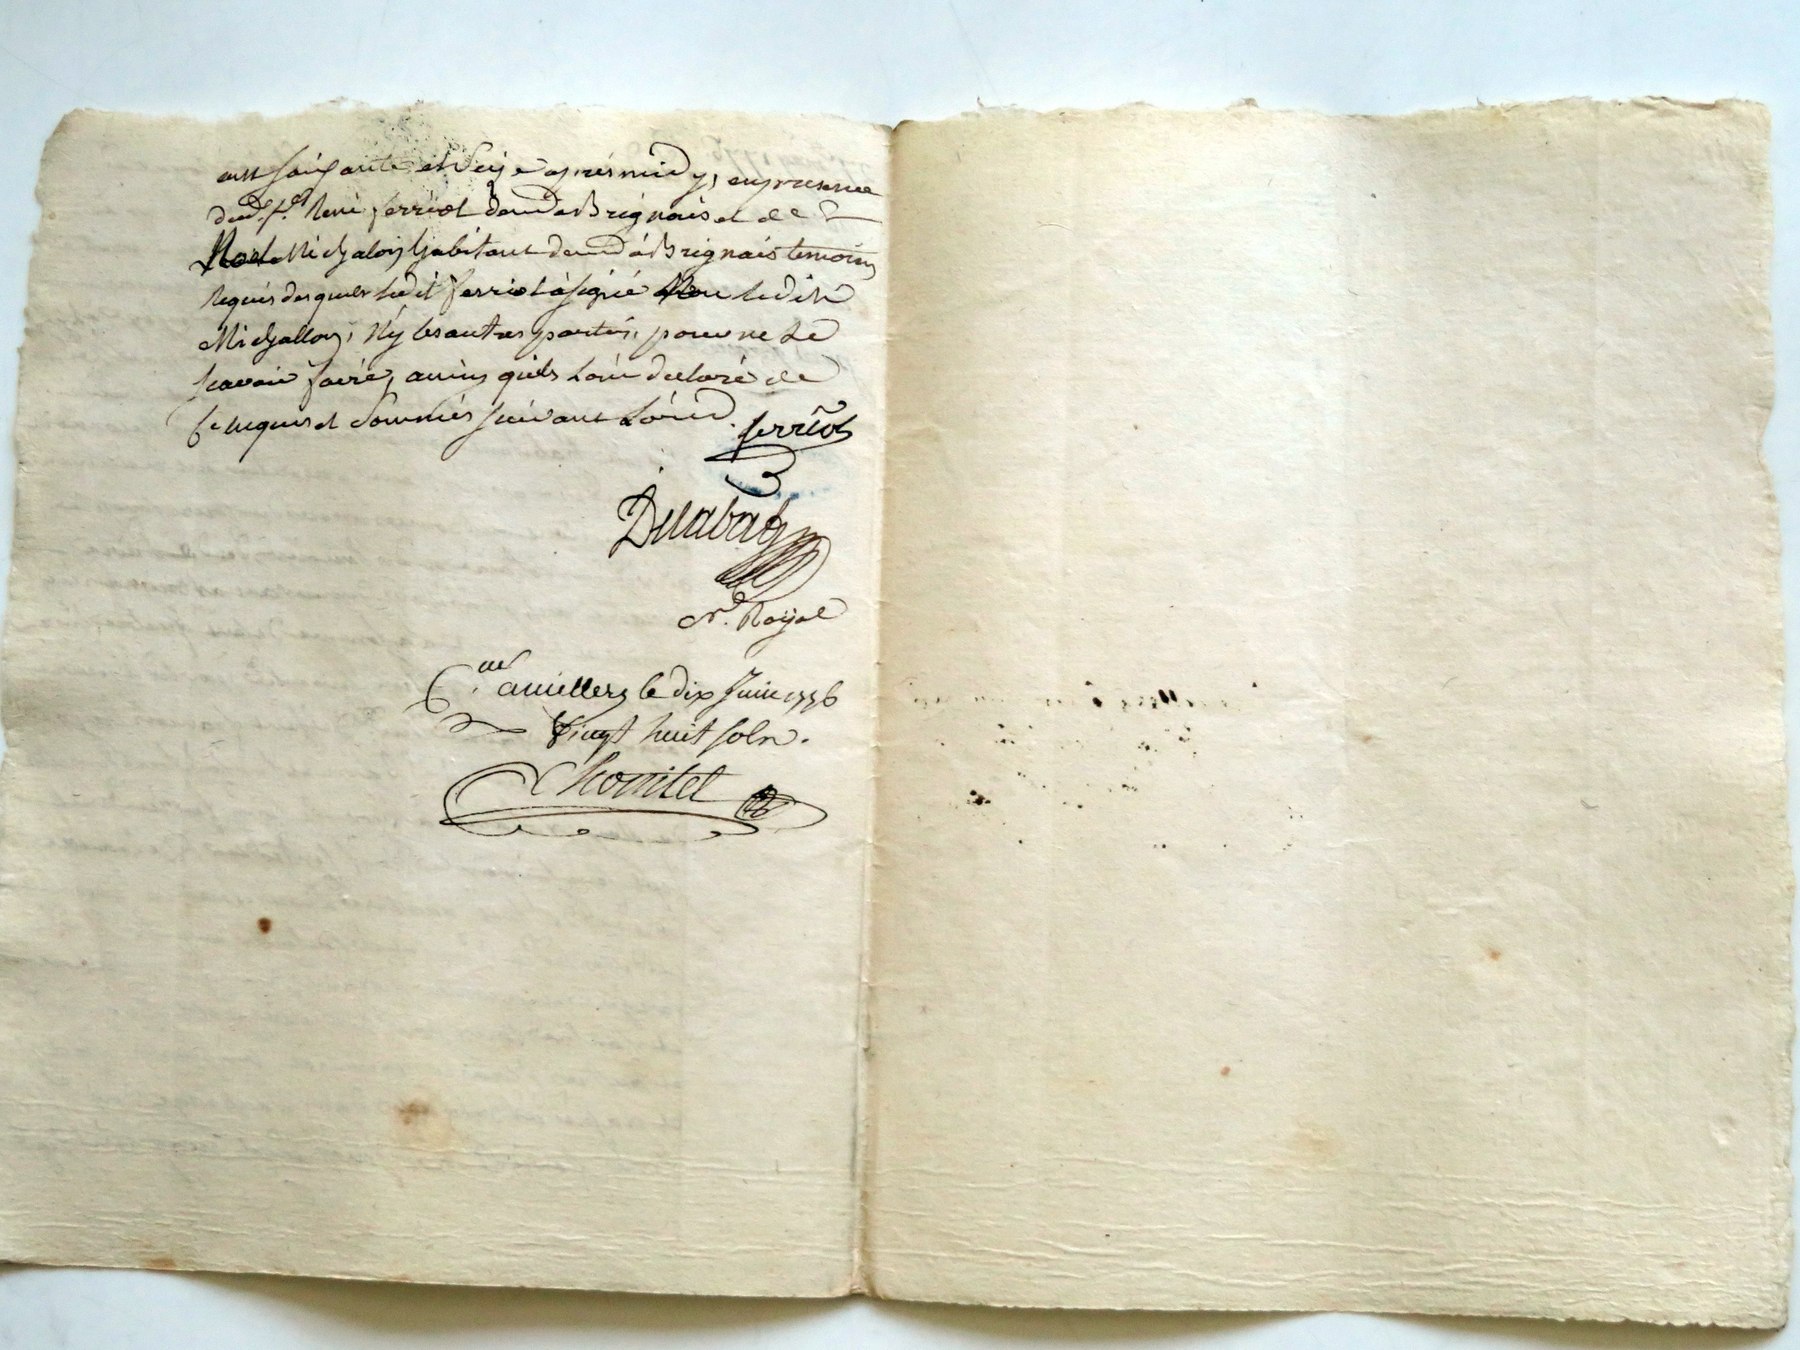 cent soixante et seize apres midy, en presence
de Sr. René ferriot dem.t a Brignais et de
Noel Michalon habitant dem.t à Brignais temoins
Requis desquels ledit ferriot à signé Non ledit
Michallon, Ny les autres parties, pour ne le
scavoir faire, ainsy qu'ils l'ont declaré de
ce enquis et sommés suivant l'ord.
ferriot
Delabat
N.re Royal
C.lé a millery le dix Juin 1776
Vingt huit sols.
Chomitel